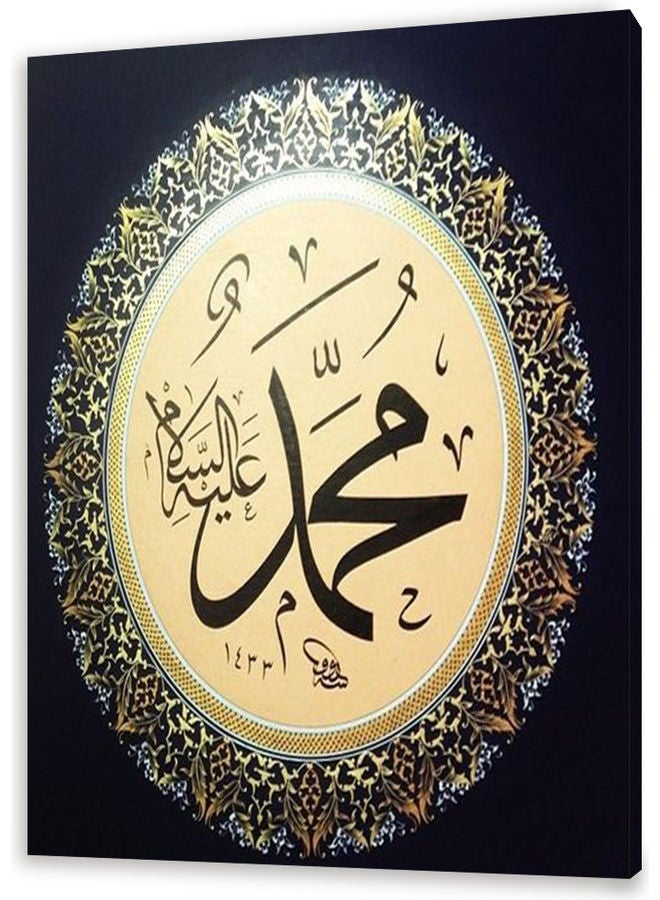 محمد
عليه السلام
١٤٣٣